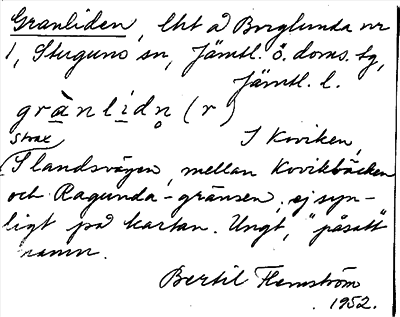 Granliden, lht å Borglunda nr
1, Stuguns sn, Jämtl. ö. doms. tg,
Jämtl. l.
grànlidn̥ (r)
I Koviken,
strax
S landsvägen, mellan Kovikbäcken
och Ragunda-gränsen, ej syn-
ligt på kartan. Ungt, "påsatt"
namn.
Bertil Flemström
1952.